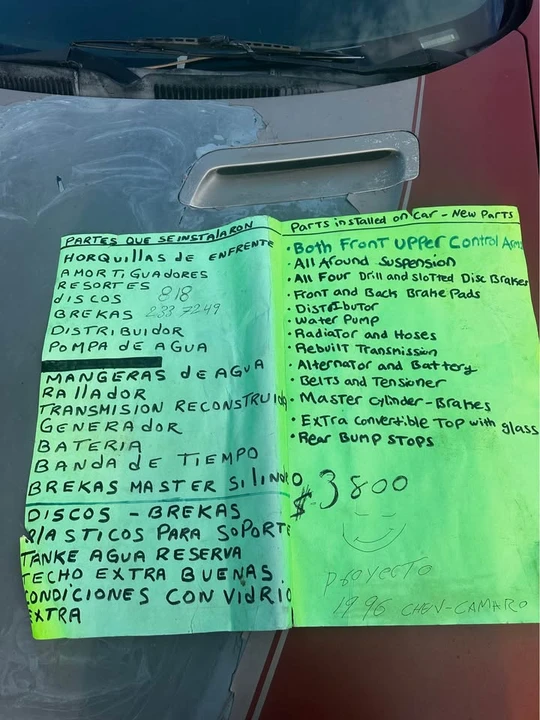 PARTES QUE SEINSTALARON
HORQUILLAS dE ENFRENTE
AMORTIGUADORES
RESORTES
dISCOS 818
BREKAS 233 7249
DISTRIBUIDOR
POMPA DE AGUA
MANGERAS dE AGUA
RAllADOR
TRANSMISION RECONSTRUIda
GENERADOR
BATERIA
BANDA dE TIEMPO
BREKAS MASTER SILINdRO
DISCOS - BREKAS
PlASTICOS PARA SOPORTE
TANKE AGUA RESERVA
TECHO EXTRA BUENAS.
CONDICIONES CON VIdRIO
EXTRA
Parts installed on Car - New Parts
• Both Front Upper Control Arms
• All Around Suspension
• All Four Drill and Slotted Disc Brakes
• Front and Back Brake Pads
• Distributor
• Water Pump
• Radiator and Hoses
• Rebuilt Transmission
• Alternator and Battery
• Belts and Tensioner
• Master Cylinder-Brakes
• Extra convertible Top with glass
• Rear Bump Stops
$ 3800
proyecto
1996 CHEV-CAMARO